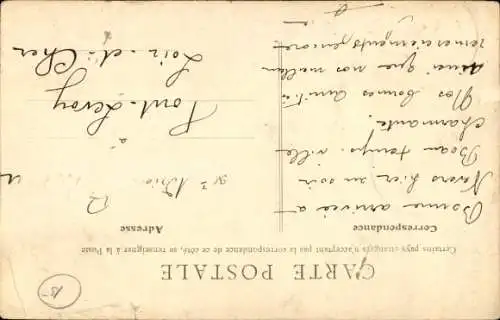 CARTE POSTALE
Certains pays étrangers n'acceptant pas la correspondance de ce côté, se renseigner à la Poste
Correspondance
Adresse
Bonne arrivée à
Nevers hier au soir
Beau temps. Ville
charmante.
Nos bonnes amitiés
ainsi que nos meilleurs
remerciements encore
à
Pont-Levoy
Loir-et-Cher